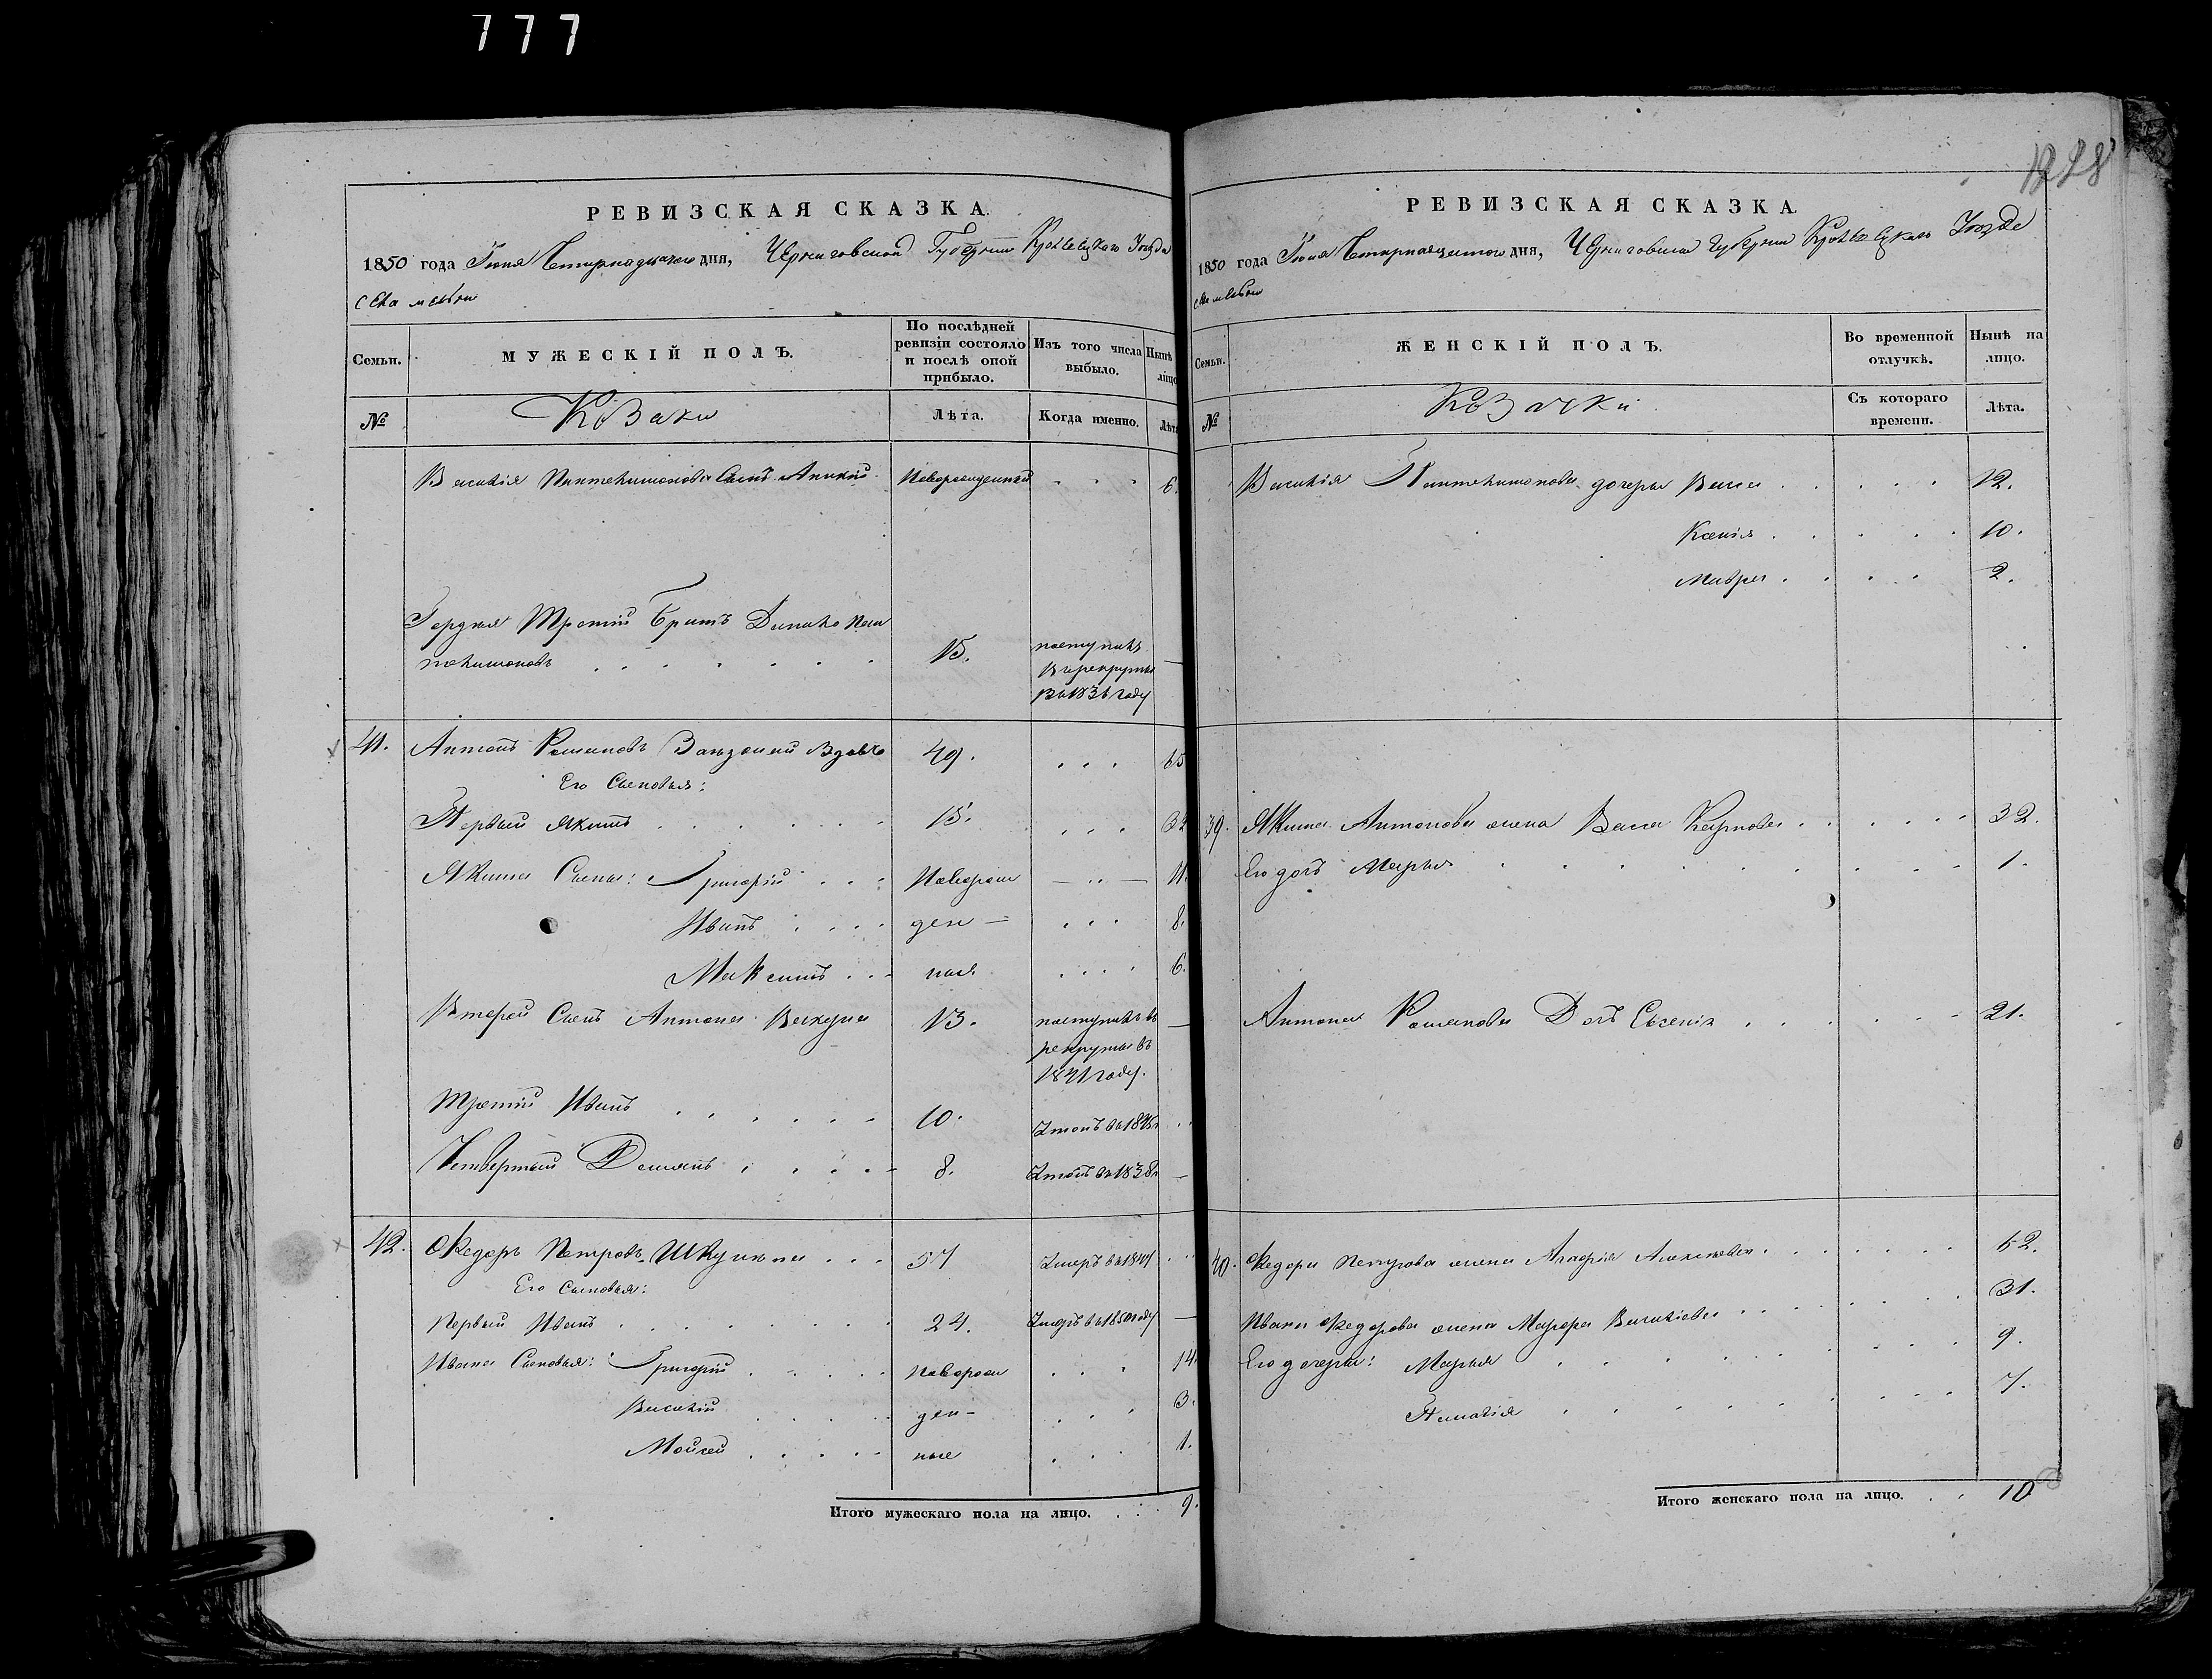 777
1228
РЕВИЗСКАЯ СКАЗКА.
1850 года Іюня Четырнадцатого дня, Черниговской Губерніи Кролевецкого Уѣзда
села
Семьи.
МУЖЕСКІЙ ПОЛЪ.
По послѣдней ревизіи состояло и послѣ оной прибыло.
Изъ того числа выбыло.
Нынѣ лицо
№
Козаки
Лѣта.
Когда именно.
Лѣта
Василія Пантелимонова Сынъ Аникій Новорожденный . . . 6.
Третий Братъ Данило Пан
телимоновъ . . . . . . . 15. поступилъ
в рекруты
въ 1836 году —
41. Антонъ Романовъ Вдовъ 49. . . . 65
Его Сыновья:
Первый Якимъ . . . . . . 15. . . . 32
Якима Сыны: Григорій . . .Новорож — .. — 11.
Иванъ . . . . ден — . . . 8.
Максимъ . . - ныя . . . . 6.
Второй Сынъ Антона 13. поступилъ въ —
рекруты въ
1841 году.
Третій Иванъ . . . . . - 10. . .
Четвертый Демянъ . . . . - 8. въ 1838 г —
42. Ѳедоръ Петровъ Шкулипа . . . 57 Умеръ въ 1841 . .
Его Сыновья:
Первый Иванъ . . . . . . . 24. Умеръ въ 1850 году —
Ивана Сыновья: Григорій . . . . . Новорож . . . 14.
Василій . . . . ден- . . . 3.
Мойсей . . . . - ные . . 1.
Итого мужескаго пола на лицо. . : . 9.
РЕВИЗСКАЯ СКАЗКА.
1850 года Іюня Четырнадцатого дня, Черниговской губерніи Кролевецкаго Уѣзда
Семьи.
ЖЕНСКІЙ ПОЛЪ.
Во временной отлучкѣ.
Нынѣ на лицо.
№
Козачки
Съ котораго времени.
Лѣта.
Василія Пантелимонова дочери Васса . . . . . . 12.
Ксенія . . . . . 10.
Мавра . . . . 2.
39. Якима Антонова жена Васса Карпова . . . . . - 32.
Его дочь Марья . . . . . . . . - 1.
Антона Романова Дочь Евгенія . . . . . - - 21.
40. Ѳедора Петрова жена Агафія Алексѣева . . . . . . . 62.
Ивана Ѳедорова жена Марфа Василіева . . . . . . . 31.
Его дочери: Марья . . . . . . . . - 9.
Пелагія . . . . . . . . - 7.
Итого женскаго пола на лицо. . . 10